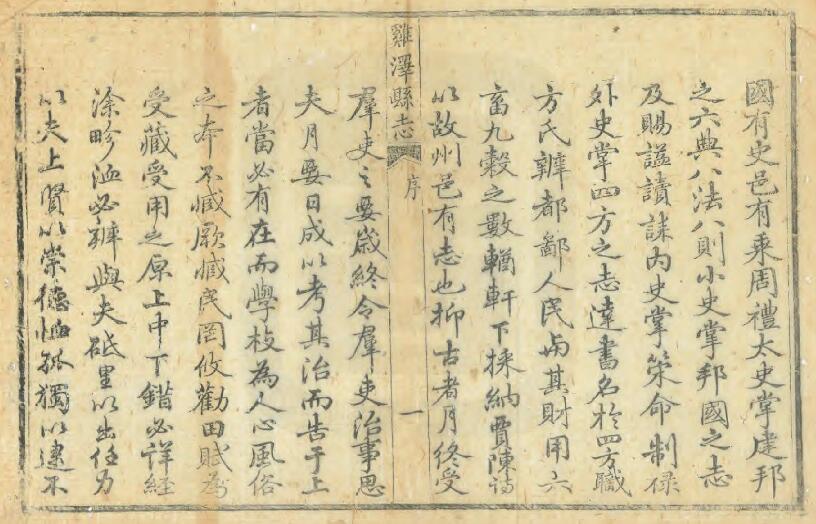 國有史邑有乘周禮太史掌建邦
之六典八法八則小史掌邦國之志
及賜諡讀誄內史掌策命制祿
外史掌四方之志達書名於四方職
方氏辨都鄙人民與其財用六
畜九穀之數輶軒下採納賈陳詩
以故州邑有志也抑古者月終受
雞澤縣志
序
一
羣吏之要歲終令羣吏治事思
夫月要日成以考其治而告于上
者當必有在而學校為人心風俗
之本不臧厥臧民罔攸勸田賦為
受藏受用之原上中下錯必詳經
涂畛洫必辨與夫砥里以出任力
以夫上賢以崇德恤孤獨以逮不